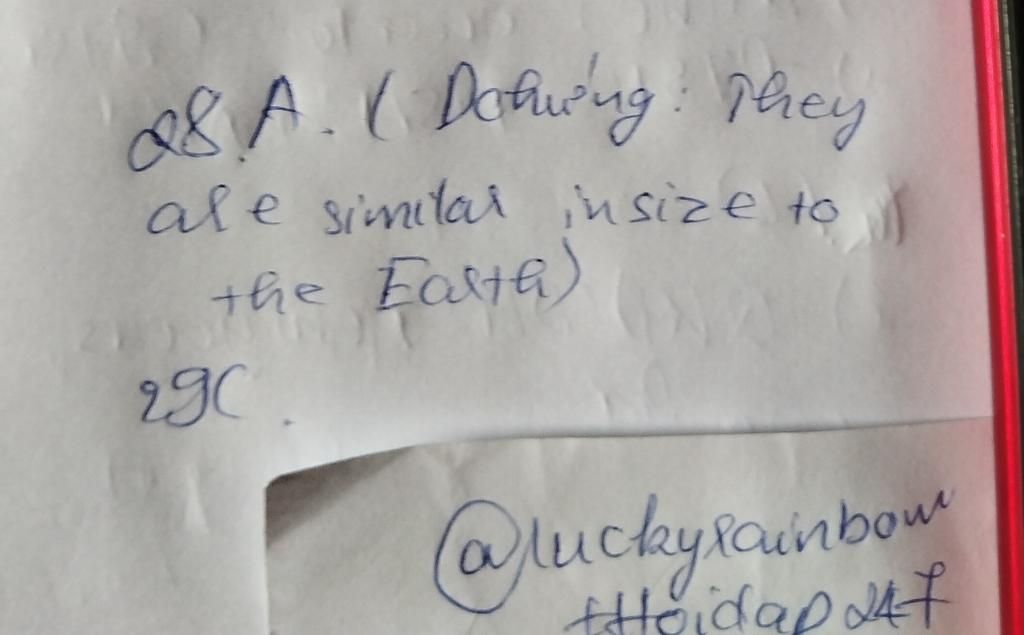 28.A. ( Dohưýng: They
are similar in size to
the Earth)
29C.
@luckyrainbow
#Hoidap247